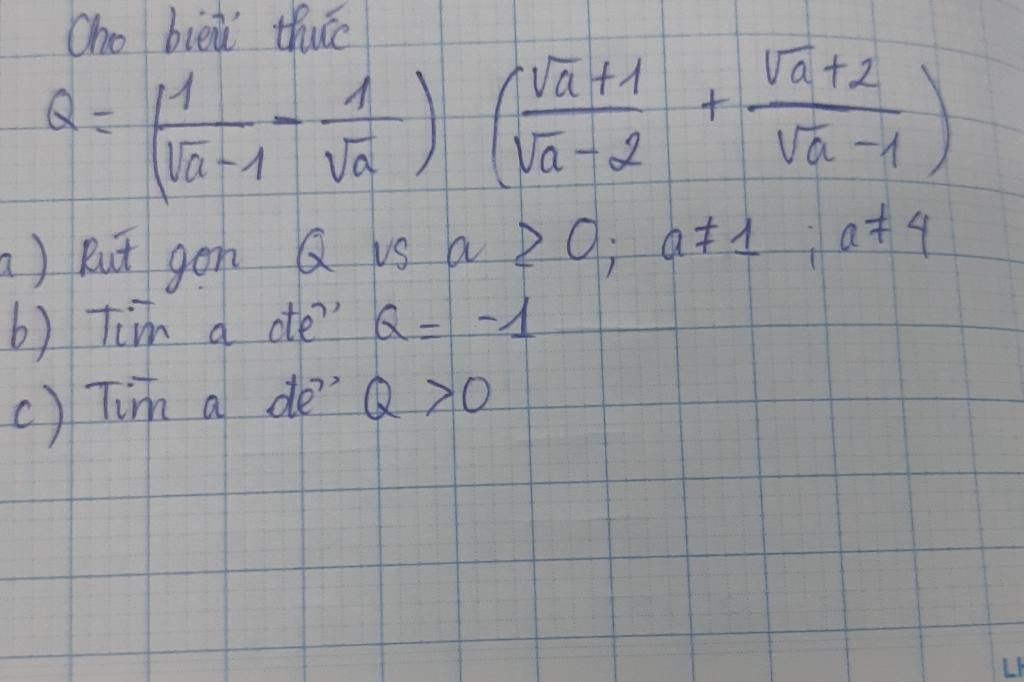 Cho biểu thức
Q = (1/(√a - 1) - 1/√a) ((√a + 1)/(√a - 2) + (√a + 2)/(√a - 1))
a) Rút gọn Q vs a ≥ 0; a ≠ 1 ; a ≠ 4
b) Tìm a để Q = -1
c) Tìm a để Q > 0
LH